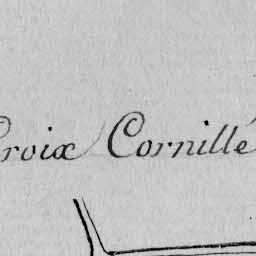 Croix Cornillé